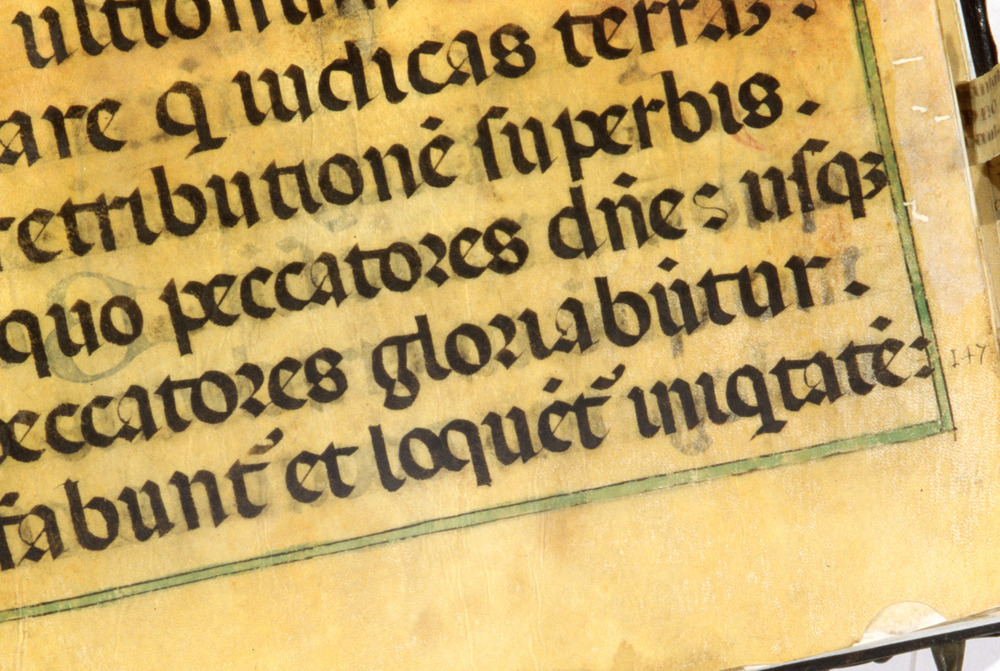 are q iudicas terrā:
retributionē superbis.
quo peccatores dn̄e: usqꝫ
peccatores gloriabūtur.
fabunt᷑ et loquēt᷑ iniqtatē:
147